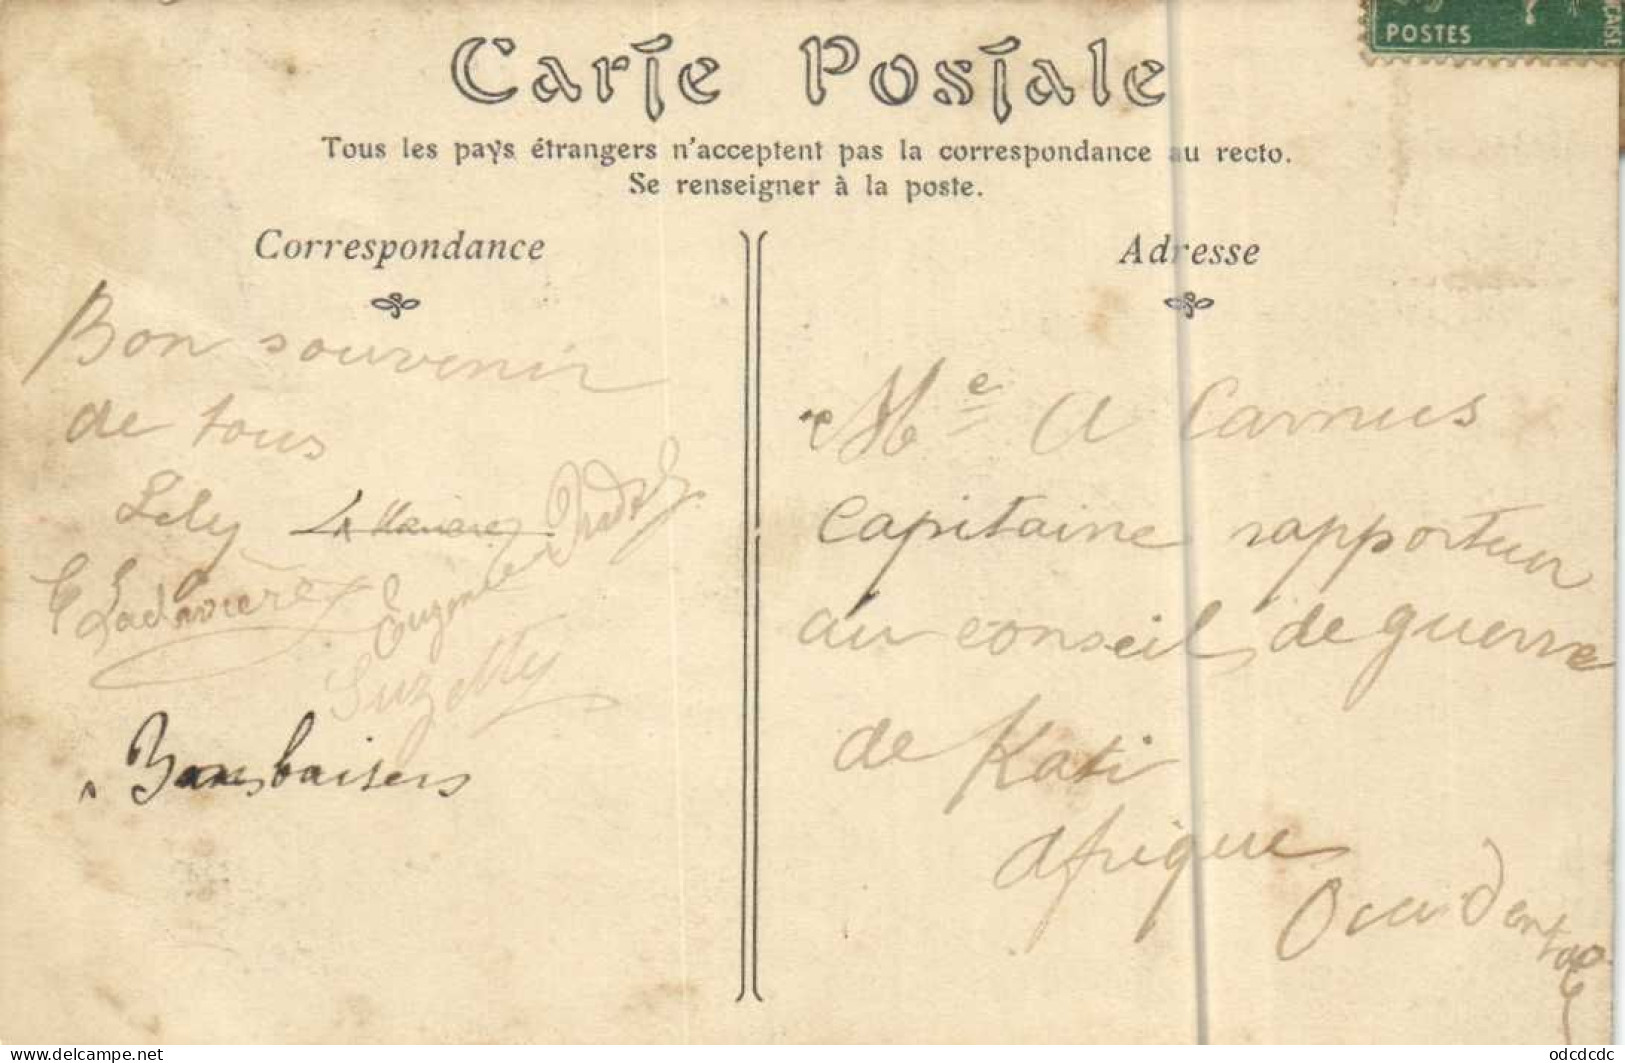 Carte Postale
POSTES
Tous les pays étrangers n'acceptent pas la correspondance au recto.
Se renseigner à la poste.
Correspondance
Bon souvenir
de tous
Lily
Eugenie
Suzette
Bons baisers
Adresse
Me A Camus
Capitaine rapporteur
au conseil de guerre
de Kati
Afrique
Occidentale
delcampe.net
odcdcdc